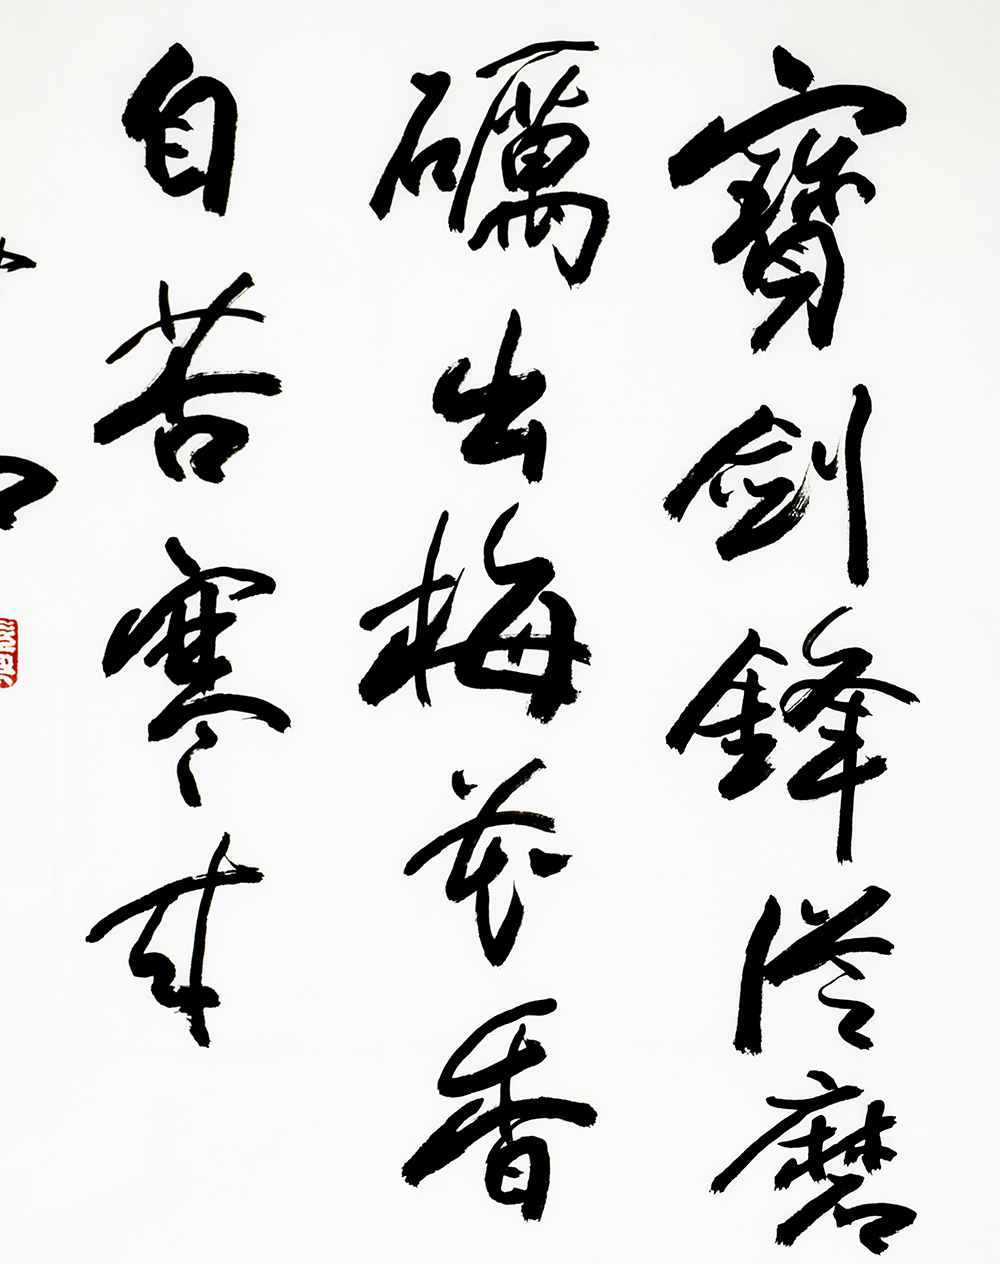 寶劍鋒從磨
礪出梅花香
自苦寒来